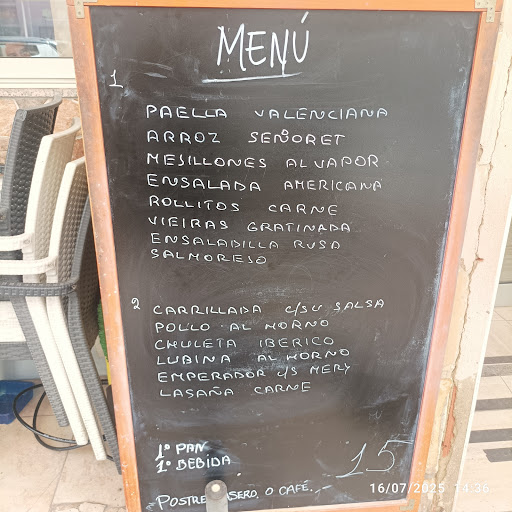 MENÚ
1
PAELLA VALENCIANA
ARROZ SEÑORET
MESILLONES AL VAPOR
ENSALADA AMERICANA
ROLLITOS CARNE
VIEIRAS GRATINADA
ENSALADILLA RUSA
SALMOREJO
2
CARRILLADA C/SU SALSA
POLLO AL HORNO
CHULETA IBERICO
LUBINA AL HORNO
EMPERADOR C/S MERY
LASAÑA CARNE
1º PAN
1º BEBIDA
15
POSTRE ASERO, O CAFÉ.
16/07/2025 14:36